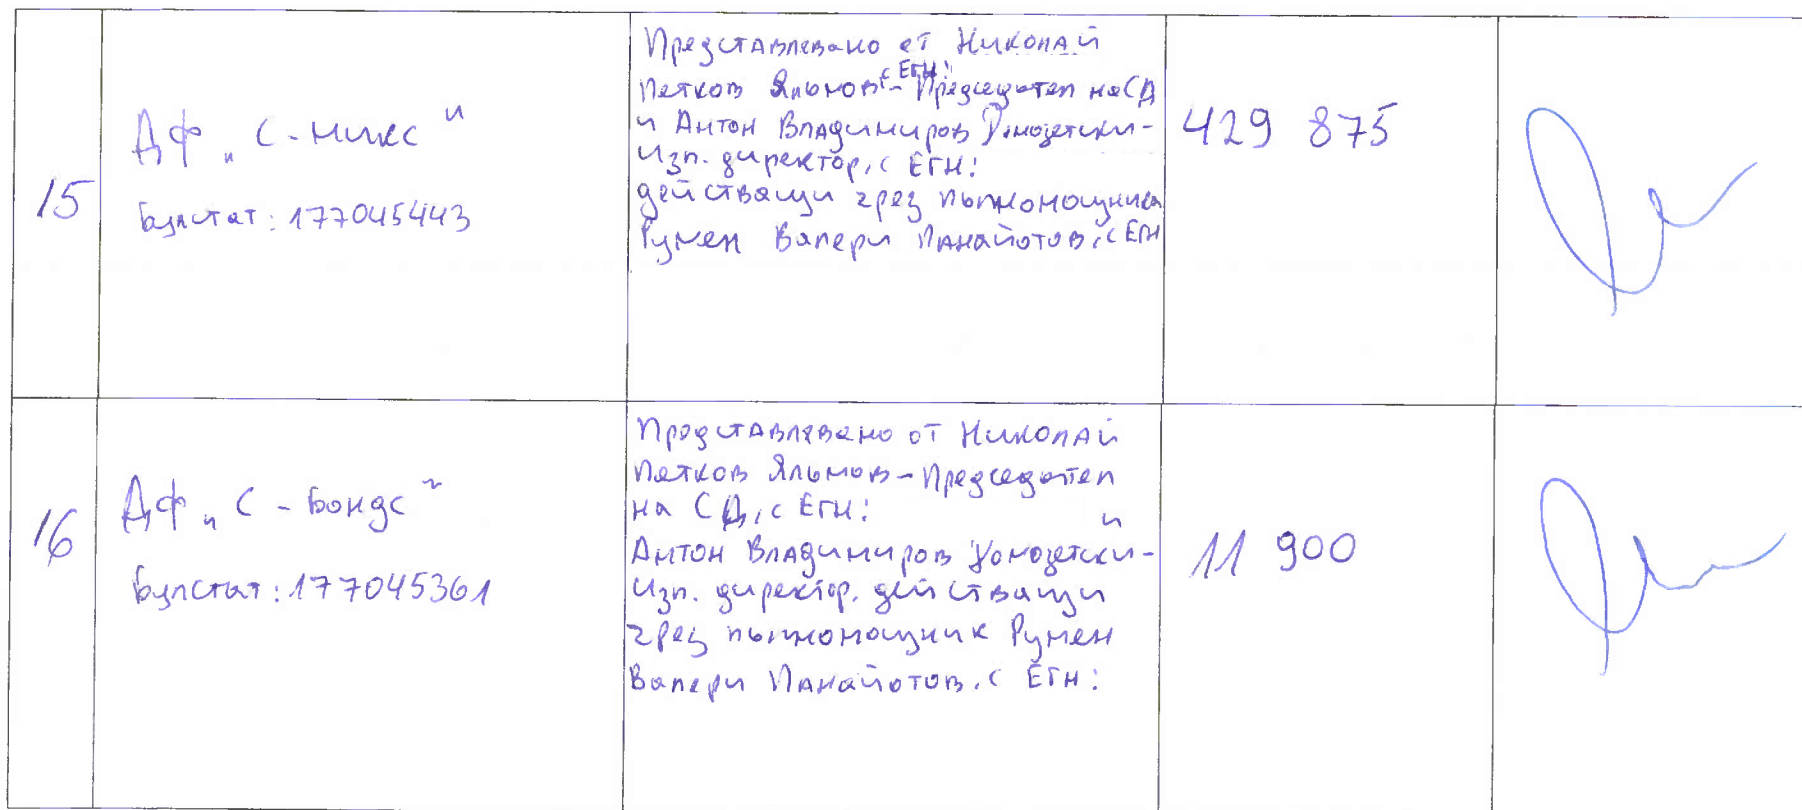 15
ДФ „С-Микс"
Булстат: 177045443
Представлявано от Николай
Петков Ялъмов с ЕГН: - Председател на СД
и Антон Владимиров Домозетски-
Изп. директор, с ЕГН:
действащи чрез пълномощника
Румен Валери Панайотов, с ЕГН
429 875
16
ДФ „С-Бондс"
Булстат: 177045361
Представлявано от Николай
Петков Ялъмов - Председател
на СД, с ЕГН: и
Антон Владимиров Домозетски-
Изп. директор, действащи
чрез пълномощник Румен
Валери Панайотов, с ЕГН:
11 900